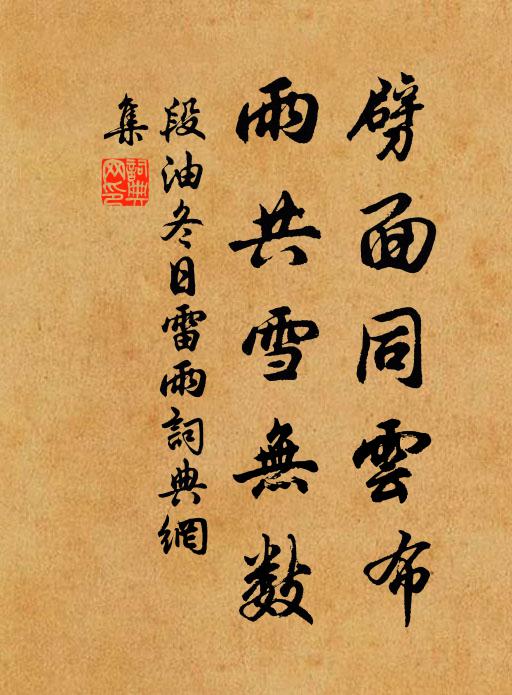 劈面同雲布
雨共雪無數
段油冬日雷雨詞典網
集
詞典網印